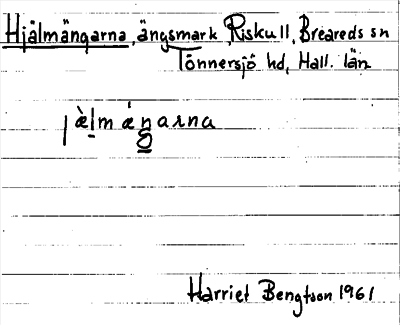 Hjälmängarna, ängsmark, Riskull, Breareds sn
Tönnersjö hd, Hall. län
jæ̀lmǽŋarna
Harriet Bengtson 1961